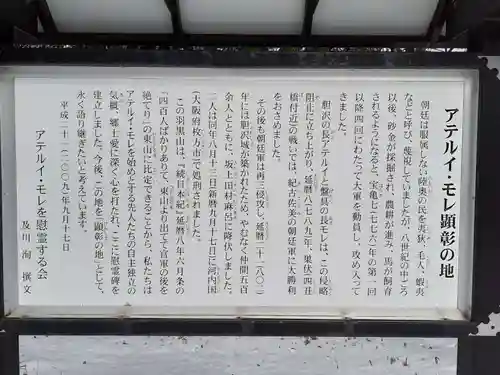 アテルイ・モレ顕彰の地
朝廷は服属しない陸奥の民を夷狄・毛人、蝦夷
などと呼び、蔑視していましたが、八世紀の中ごろ
以後、砂金が採掘され、農耕が進み、馬が飼育
されるようになると、宝亀七(七七六)年の第一回
以降四回にわたって大軍を動員し、攻め入って
きました。
胆沢の長アテルイと盤具の長モレは、この侵略
阻止に立ち上がり、延暦八(七八九)年、巣伏(四丑
橋付近)の戦いでは、紀古佐美の朝廷軍に大勝利
をおさめました。
その後も朝廷軍は再三侵攻し、延暦二十一(八〇二)
年には胆沢城が築かれたため、やむなく仲間五百
余人とともに、坂上田村麻呂に降伏しました。
二人は同年八月十三日(新暦九月十七日)に河内国
(大阪府枚方市)で処刑されました。
この羽黒山は、『続日本紀』延暦八年六月条の
「四百人ばかりあって、東山より出でて官軍の後を
絶てり」の東山に比定できることから、私たちは
アテルイ・モレを始めとする先人たちの自主独立の
気概、郷土愛に深く心を打たれ、ここに慰霊碑を
建立しました。今後、この地を「顕彰の地」として、
永く語り継ぎたいと考えています。
平成二十一(二〇〇九)年九月十七日
アテルイ・モレを慰霊する会
及川 洵 撰文